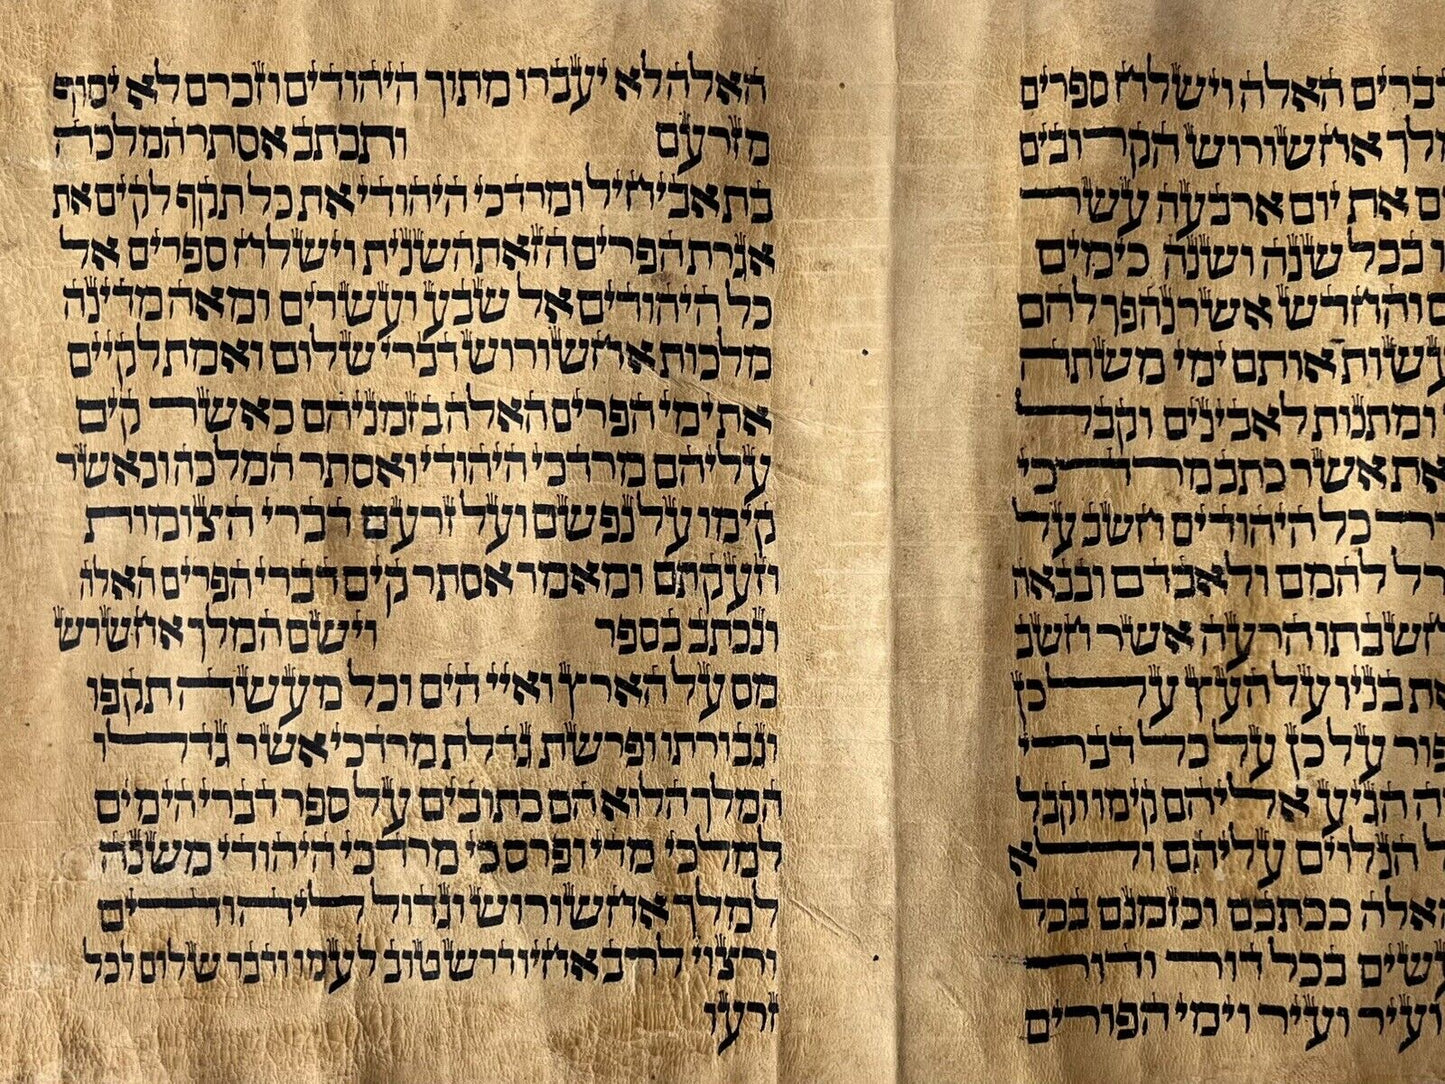 דברים האלה וישלח ספרים
לך אחשורוש הקרובים
ים את יום ארבעה עשר
בכל שנה ושנה כימים
ם והחדש אשר נהפך להם
עשות אותם ימי משתה
ומתנות לאבינים וקבל
את אשר כתב מרדכי
ר כל היהודים חשב על
רל להמם ולאבדם ובבאה
חשבתו הרעה אשר חשב
ת בניו על העץ על כן
פור על כן על כל דברי
ה הגיע אליהם קימו וקבל
ל הנלוים עליהם ולא
האלה ככתבם וכזמנם בכל
שים בכל דור ודור
ועיר ועיר וימי הפורים
האלה לא יעברו מתוך היהודים וזכרם לא יסוף
מזרעם ותכתב אסתר המלכה
בת אביחיל ומרדכי היהודי את כל תקף לקים את
אגרת הפרים הזאת השנית וישלח ספרים אל
כל היהודים אל שבע ועשרים ומאה מדינה
מלכות אחשורוש דברי שלום ואמת לקיים
את ימי הפרים האלה בזמניהם כאשר קים
עליהם מרדכי היהודי ואסתר המלכה וכאשר
קימו על נפשם ועל זרעם דברי הצומות
וזעקתם ומאמר אסתר קים דברי הפרים האלה
ונכתב בספר וישם המלך אחשרש
מס על הארץ ואיי הים וכל מעשה תקפו
וגבורתו ופרשת גדלת מרדכי אשר גדלו
המלך הלוא הם כתובים על ספר דברי הימים
למלכי מדי ופרס כי מרדכי היהודי משנה
למלך אחשורוש וגדול ליהודים
ורצוי לרב אחיו דרש טוב לעמו ודבר שלום לכל
זרעו